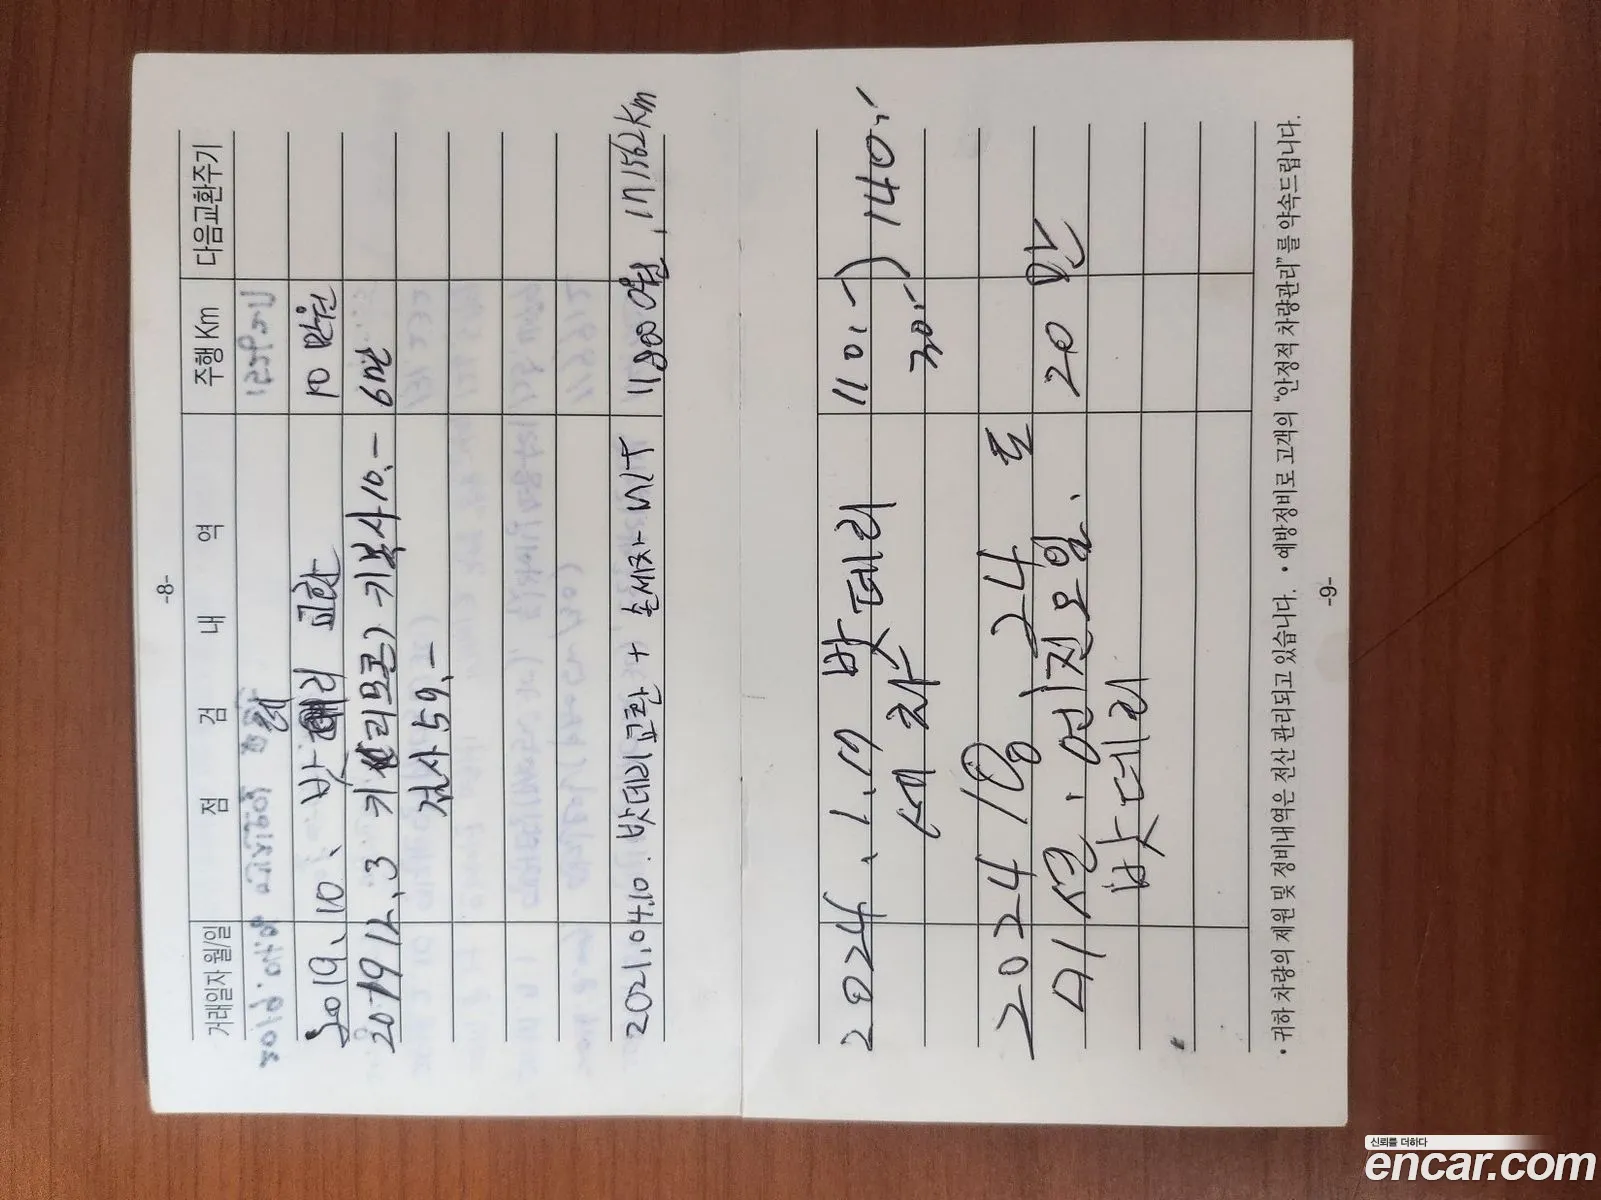 -8-
거래일자 월/일 점 검 내 역 주행 Km 다음교환주기
2019. 10. 밧데리 교환 10만원
2019 12. 3 키(리모콘) 키복사 10.- 6만
59.-
2021.04.10. 밧데리교환 + 손세차 11800원, 171562km
2024. 1. 17 밧데리 110.-) 140.-
세차 30.-
2024 1월 24 토
시킨. 엔진오일. 20만
밧데리
• 귀하 차량의 제원 및 정비내역은 전산 관리되고 있습니다. • 예방정비로 고객의 "안정적 차량관리"를 약속드립니다.
-9-
신뢰를 더하다
encar.com